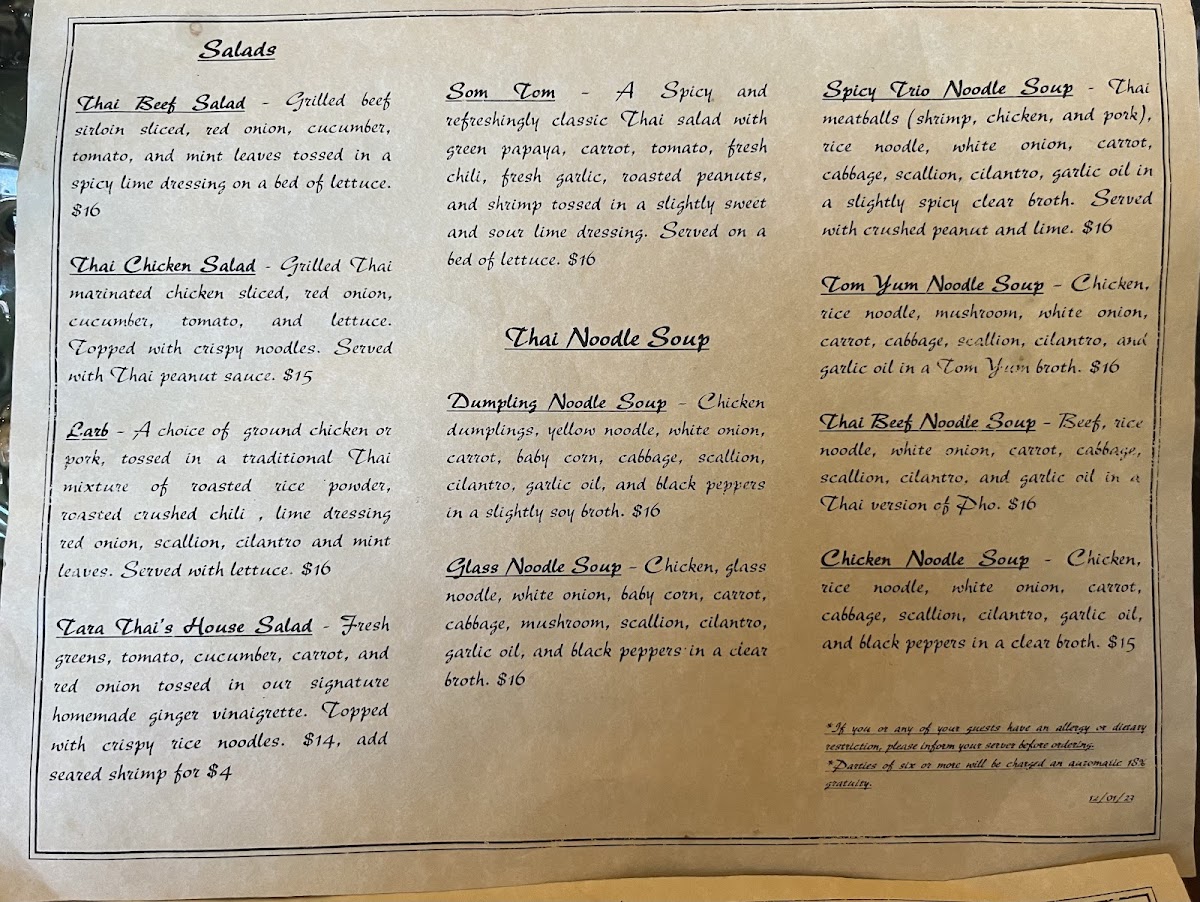 Salads
Thai Beef Salad - Grilled beef
sirloin sliced, red onion, cucumber,
tomato, and mint leaves tossed in a
spicy lime dressing on a bed of lettuce.
$16
Thai Chicken Salad - Grilled Thai
marinated chicken sliced, red onion,
cucumber, tomato, and lettuce.
Topped with crispy noodles. Served
with Thai peanut sauce. $15
Larb - A choice of ground chicken or
pork, tossed in a traditional Thai
mixture of roasted rice powder,
roasted crushed chili , lime dressing
red onion, scallion, cilantro and mint
leaves. Served with lettuce. $16
Tara Thai's House Salad - Fresh
greens, tomato, cucumber, carrot, and
red onion tossed in our signature
homemade ginger vinaigrette. Topped
with crispy rice noodles. $14, add
seared shrimp for $4
Som Tom - A Spicy and
refreshingly classic Thai salad with
green papaya, carrot, tomato, fresh
chili, fresh garlic, roasted peanuts,
and shrimp tossed in a slightly sweet
and sour lime dressing. Served on a
bed of lettuce. $16
Thai Noodle Soup
Dumpling Noodle Soup - Chicken
dumplings, yellow noodle, white onion,
carrot, baby corn, cabbage, scallion,
cilantro, garlic oil, and black peppers
in a slightly soy broth. $16
Glass Noodle Soup - Chicken, glass
noodle, white onion, baby corn, carrot,
cabbage, mushroom, scallion, cilantro,
garlic oil, and black peppers in a clear
broth. $16
Spicy Trio Noodle Soup - Thai
meatballs (shrimp, chicken, and pork),
rice noodle, white onion, carrot,
cabbage, scallion, cilantro, garlic oil in
a slightly spicy clear broth. Served
with crushed peanut and lime. $16
Tom Yum Noodle Soup - Chicken,
rice noodle, mushroom, white onion,
carrot, cabbage, scallion, cilantro, and
garlic oil in a Tom Yum broth. $16
Thai Beef Noodle Soup - Beef, rice
noodle, white onion, carrot, cabbage,
scallion, cilantro, and garlic oil in a
Thai version of Pho. $16
Chicken Noodle Soup - Chicken,
rice noodle, white onion, carrot,
cabbage, scallion, cilantro, garlic oil,
and black peppers in a clear broth. $15
*If you or any of your guests have an allergy or dietary
restriction, please inform your server before ordering.
*Parties of six or more will be charged an automatic 18%
gratuity.
12/01/23